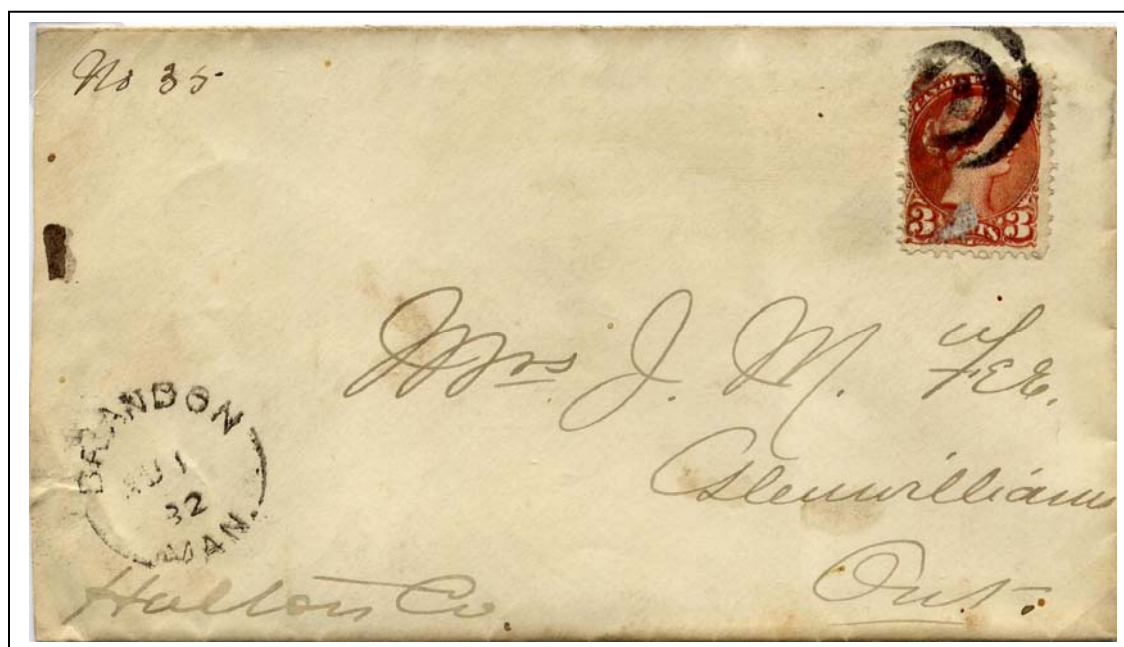 No 35
3 CENTS 3
Mrs J. M. Fee.
Glenwilliams
Ont.
BRANDON
AU 1
82
MAN.
Halton Co.